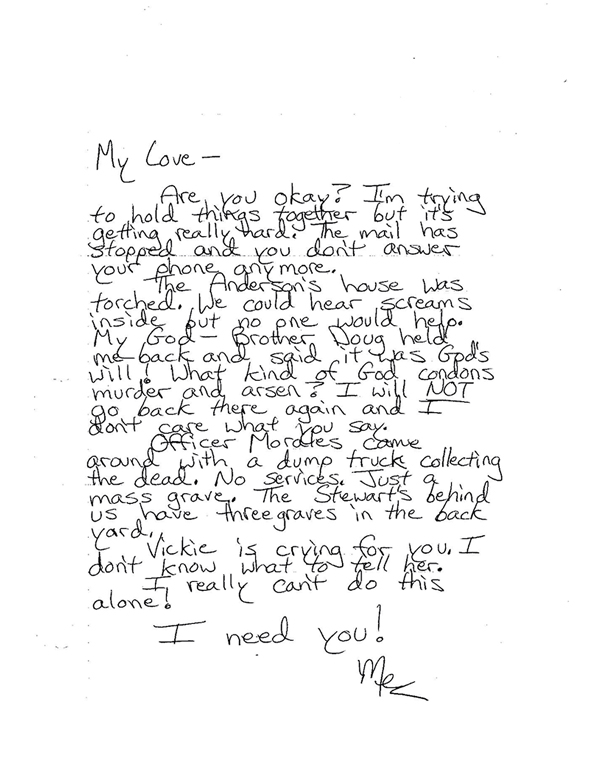 My Love —
Are you okay? I'm trying
to hold things together but it's
getting really hard. The mail has
stopped and you don't answer
your phone anymore.
The Anderson's house was
torched. We could hear screams
inside but no one would help.
My God — Brother Doug held
me back and said it was God's
will! What kind of God condons
murder and arsen? I will NOT
go back there again and I
don't care what you say.
Officer Morales came
around with a dump truck collecting
the dead. No services. Just a
mass grave. The Stewart's behind
us have three graves in the back
yard.
Vickie is crying for you. I
don't know what to tell her.
I really can't do this
alone!
I need you!